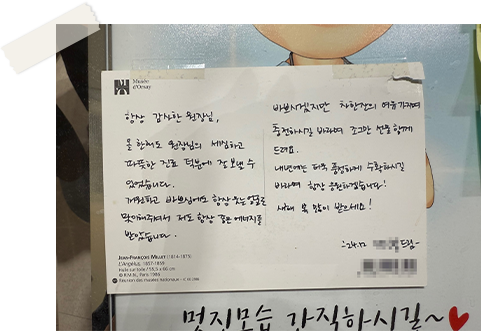 Musée
d'Orsay
항상 감사한 원장님,
올 한해도 원장님의 세심하고
따뜻한 진료 덕분에 잘 보낼 수
있었습니다.
피곤하고 바쁘심에도 항상 웃는 얼굴로
맞이해주셔서 저도 항상 좋은 에너지를
받았습니다.
바쁘시겠지만 차한잔의 여유가지며
충전하시길 바라며 조그만 선물 함께
드려요.
내년에는 더욱 풍성하게 수확하시길
바라며 항상 응원하겠습니다!
새해 복 많이 받으세요!
-24.12 드림-
JEAN-FRANÇOIS MILLET (1814-1875)
L'Angélus, 1857-1859
Huile sur toile / 55,5 x 66 cm
© R.M.N., Paris, 1986
Réunion des musées nationaux
멋진모습 간직하시길~